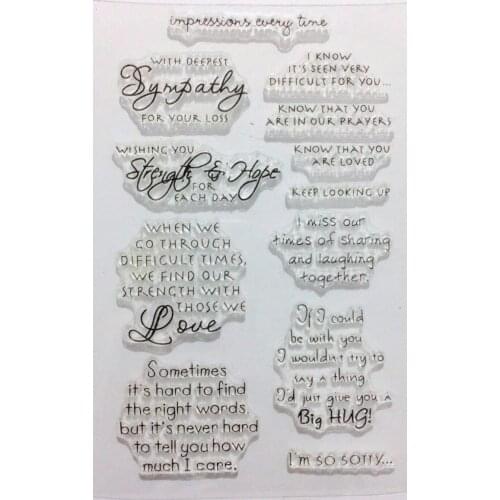 impressions every time
WITH DEEPEST
Sympathy
FOR YOUR LOSS
WISHING YOU
Strength & Hope
FOR
EACH DAY
WHEN WE
GO THROUGH
DIFFICULT TIMES,
WE FIND OUR
STRENGTH WITH
THOSE WE
Love
Sometimes
it's hard to find
the right words,
but it's never hard
to tell you how
much I care.
I KNOW
IT'S SEEN VERY
DIFFICULT FOR YOU...
KNOW THAT YOU
ARE IN OUR PRAYERS
KNOW THAT YOU
ARE LOVED
KEEP LOOKING UP
I miss our
times of sharing
and laughing
together.
If I could
be with you
I wouldn't try to
say a thing
I'd just give you a
Big HUG!
I'M SO SOTTY...